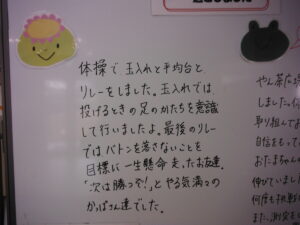 体操で玉入れと平均台と
リレーをしました。玉入れでは
投げるときの足のかたちを意識
して行いましたよ。最後のリレー
ではバトンを落さないことを
目標に一生懸命走ったお友達。
「次は勝つぞ！」とやる気満々の
かっぱさん達でした。
やん茶広
しました。
取り組んで
自信をもって
おたまちゃん
伸びていまし
何度も挑戦
また、測定